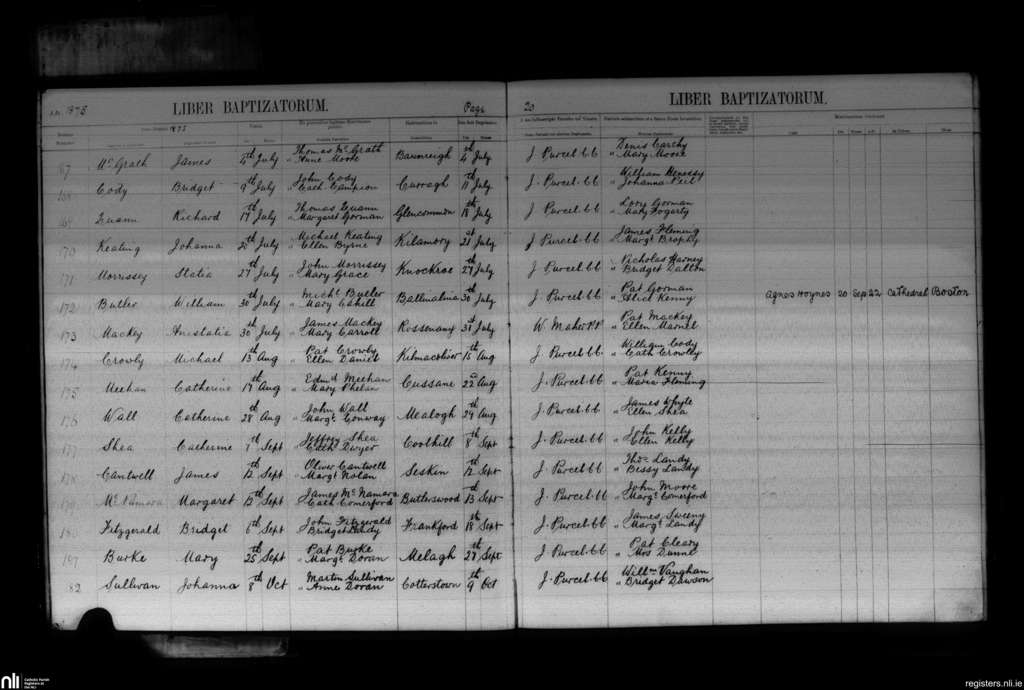 A.D. 1875 LIBER BAPTIZATORUM. Page 20 LIBER BAPTIZATORUM.
1875
167 McGrath James 4th July Thomas McGrath 4th July J. Purcel. CC Denis Carthy
" Anne Moore " Mary Moore
168 Cody Bridget 9th July John Cody Curragh 11th July J. Purcel. CC William
" Cath Campion " Johanna
169 Richard 17th July Thomas Glencommon 18th July J. Purcel. CC Lory Gorman
" Margaret Gorman " Mary Fogarty
170 Keating Johanna July Michael Keating Kilamory 21st July J. Purcel. CC James Fleming
" Ellen Byrne " Margt Brophy
171 Morrissey Statia 27th July John Morrissey Knockroe 27th July J. Purcel. CC Nicholas Harney
" Mary Grace " Bridget Dalton
172 Butler William 30th July Michl Butler 30th July J. Purcel. CC Pat Gorman Agnes Hoynes 20 Sep 22 Cathedral Boston
" Mary Cahill " Alice Kenny
173 Mackey Anastatia 30th July James Mackey Rossenany 31st July W. Maher PP Pat Mackey
" Mary Carroll " Ellen
174 Crowly Michael 13th Aug Pat Crowly 15th Aug J. Purcel. CC William Cody
" Ellen Daniel " Cath Crowley
175 Meehan Catherine 19th Aug Edmd Meehan Cussane 22nd Aug J. Purcel. CC Pat Kenny
" Mary Phelan " Maria Fleming
176 Wall Catherine 28th Aug John Wall Mealogh 29th Aug J. Purcel. CC James Whyte
" Margt Conway " Ellen Shea
177 Shea Catherine 7th Sept Jeffery Shea Coolhill 8th Sept J. Purcel. CC John Kelly
" Cath Dwyer " Ellen Kelly
178 Cantwell James 12th Sept Oliver Cantwell Seskin 12th Sept J. Purcel. CC Thos Landy
" Margt Nolan " Bessy Landy
179 McNamara Margaret Sept James McNamara Butlerswood 13th Sept J. Purcel. CC John Moore
" Cath Comerford " Margt Comerford
180 Fitzgerald Bridget 6th Sept John Fitzgerald Frankford 18th Sept J. Purcel. CC James Sweeny
" Bridget Landy " Margt Landy
Burke Mary 25th Sept Pat Burke Melagh 27th Sept J. Purcel. CC Pat Cleary
" Margt Doran " Mrs Dunne
82 Sullivan Johanna 8th Oct Martin Sullivan Cotterstown 9th Oct J. Purcel. CC Willm Vaughan
" Anne Doran " Bridget Dawson
nli Catholic Parish
Registers at
the NLI
registers.nli.ie